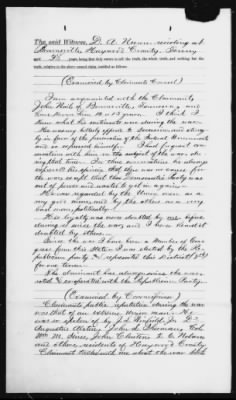 The said Witness, D. A. Nunn residing at
Brownsville Haywood County, Tenn.
age years being first duly sworn to tell the truth, the whole truth, and nothing but the
truth, relative to the above named claim, testifies as follows:
(Examined by Claimants Counsel)
I am acquainted with the Claimant
John of Brownsville, Tennessee and
have known him years. I think I
know what his sentiments were during the war.
He was very bitterly opposed to Secession and always
in favor of the preservation of the Federal Government
and so expressed himself. I had frequent con-
versations with him on the subject of the war du-
ring that time. In these conversations he always
expressed the opinion that there was no cause for
the war except that the Democratic Party was
out of power and wanted to get in again.
He was regarded by the Union men as a
very good union man and by the others as a very
bad man politically.
His loyalty was never doubted by me before
during or since the war and I have never it
doubted by others.
Since the war I have been a Member of Con-
gress from this State. I was elected by the Re-
publican party & represented this District (8th)
for one term.
The claimant has always since the war
voted & co-operated with the Republican Party.
(Examined by Commissioner)
Claimants public reputation during the war
was that of an extreme union man. He
was so spoken of by
Augustus John A.
Wm M. John Clinton
and others residents of Haywood County.
Claimant talked with me about the war both